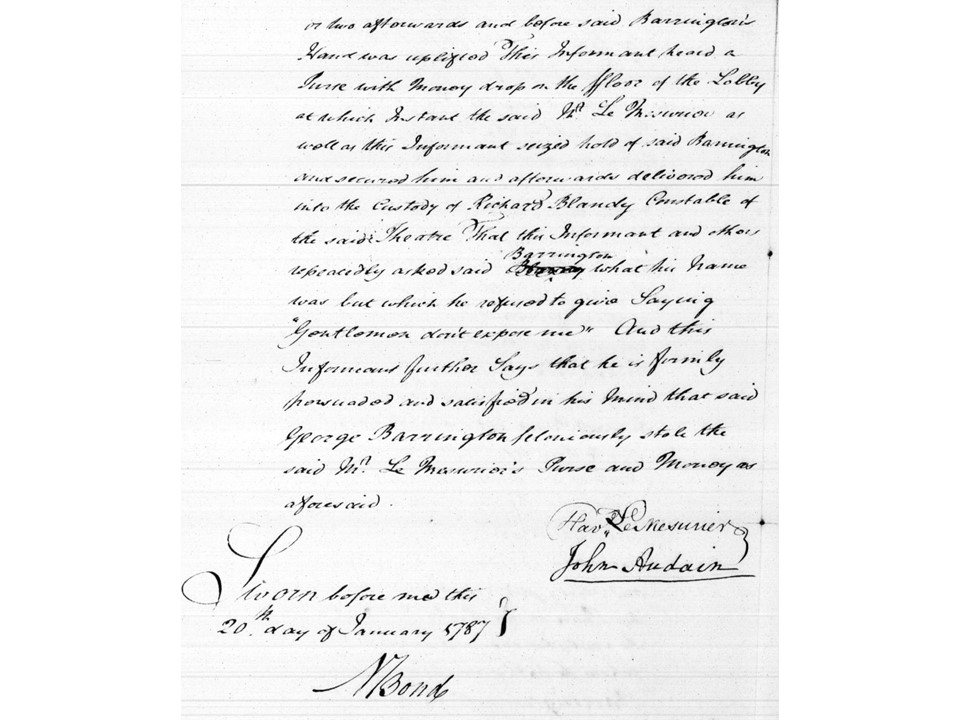 or two afterwards and before said Barrington's
Hand was uplifted This Informant heard a
Purse with Money drop on the ffloor of the Lobby
at which Instant the said Mr. Le Mesurier as
well as this Informant seized hold of said Barrington
and secured him and afterwards delivered him
into the Custody of Richard Blandy Constable of
the said Theatre That this Informant and others
Barrington
repeatedly asked said what his Name
was but which he refused to give Saying
"Gentlemen don't expose me" And this
Informant further Says that he is firmly
persuaded and satisfied in his Mind that said
George Barrington feloniously stole the
said Mr. Le Mesurier's Purse and Money as
aforesaid.
Havd. Le Mesurier
John Audain
Sworn before me this
20th. day of January 1787
N Bond